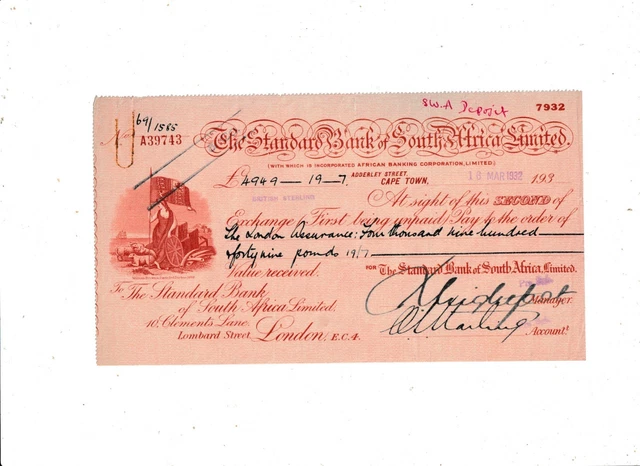 S.W.A Deposit
7932
69/1585
No. A39743
The Standard Bank of South Africa Limited.
(WITH WHICH IS INCORPORATED AFRICAN BANKING CORPORATION, LIMITED.)
£4949—19—7. ADDERLEY STREET, CAPE TOWN, 16 MAR 1932 193
BRITISH STERLING
At sight of this SECOND of
Exchange (First being unpaid) Pay to the order of
The London Assurance: Four thousand nine hundred
forty nine pounds 19/7
Value received.
FOR The Standard Bank of South Africa, Limited.
To The Standard Bank
of South Africa Limited.
Manager.
10, Clements Lane,
Lombard Street, London, E.C.4.
Accountt.